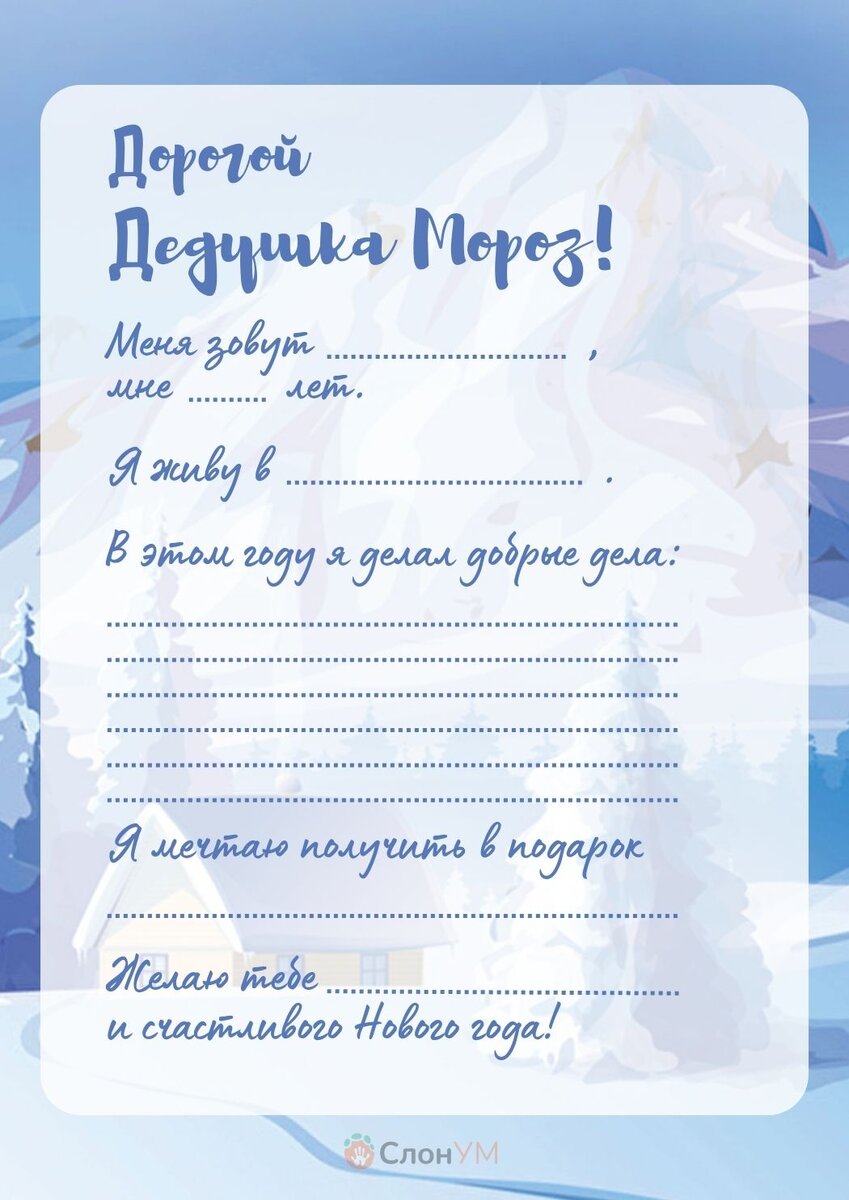 Дорогой
Дедушка Мороз!
Меня зовут .............................. ,
мне .......... лет.
Я живу в ..................................... .
В этом году я делал добрые дела:
........................................................................
........................................................................
........................................................................
........................................................................
........................................................................
........................................................................
Я мечтаю получить в подарок
........................................................................
Желаю тебе ............................................
и счастливого Нового года!
СлонУМ